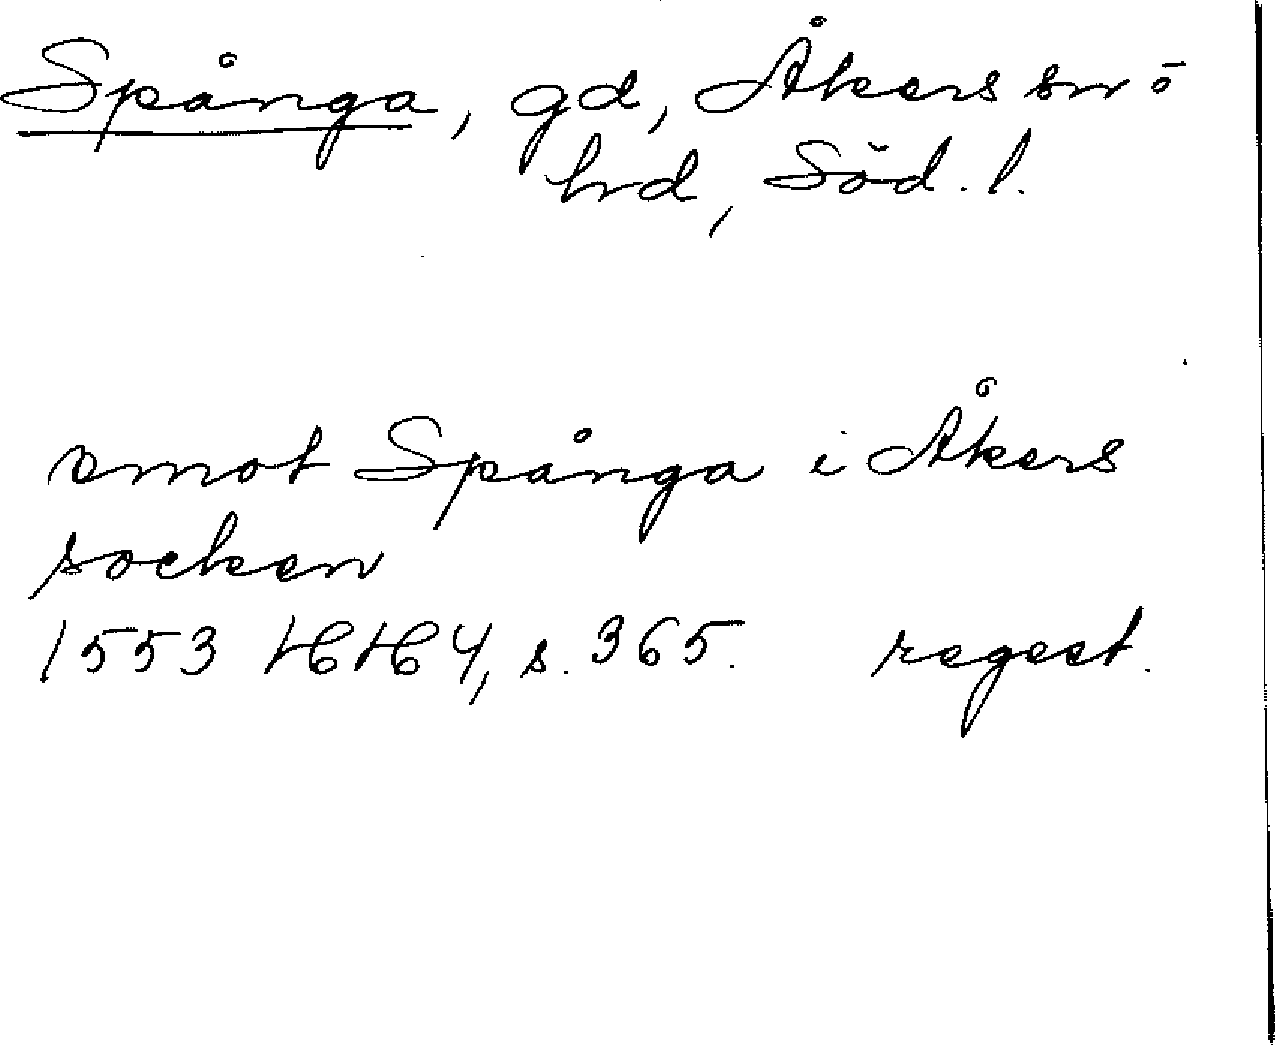 Spånga, gd, Åkers sn o
hrd, Söd. l.
emot Spånga i Åkers
socken
1553 HH 4, s. 365. regest.